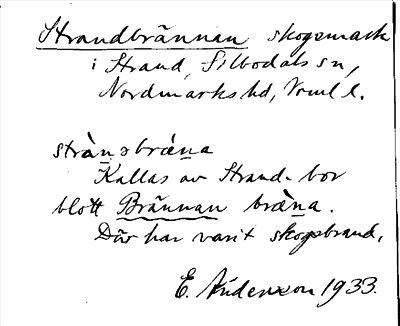 Strandbrännan skogsmark
i Strand, Silbodals sn,
Nordmarks hd, Vrml l.
stràn̲əbræ̀n̲a
Kallas av Strand-bor
blott Brännan bræ̀n̲a.
Där har varit skogsbrand.
E. 1933.